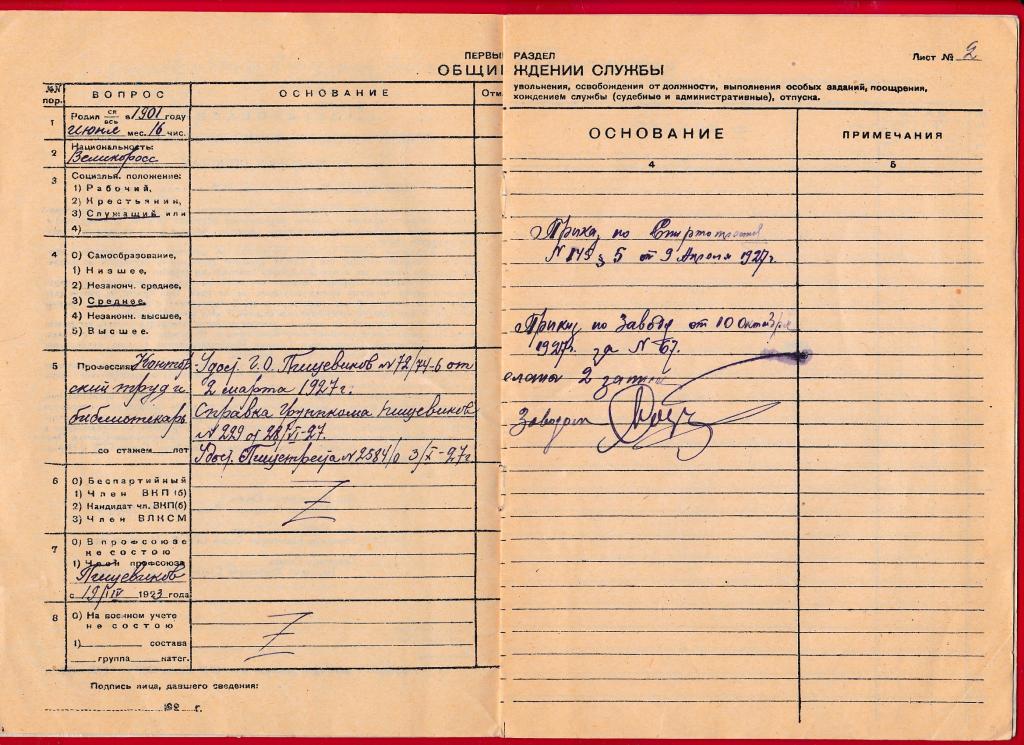 ПЕРВЫ
ОБЩИ
№№ пор.
ВОПРОС
ОСНОВАНИЕ
Отм
1
Родил ся/ась в 1901 году
июня мес. 16 чис.
2
Национальность:
Великоросс
3
Социальн. положение:
1) Рабочий,
2) Крестьянин,
3) Служащий или
4)
4
0) Самообразование,
1) Низшее,
2) Незаконч. среднее,
3) Среднее,
4) Незаконч. высшее,
5) Высшее.
5
Профессия: Контор
ский труд и
библиотекарь
со стажем лет
Удост. Г.О. Пищевиков № 72/74-6 от
2 марта 1927 г.
Справка Группкома Пищевиков
№ 229 от 28/VI-27.
Удост. № 2584/0 3/X-27 г
6
0) Беспартийный
1) Член ВКП (б)
2) Кандидат чл. ВКП(б)
3) Член ВЛКСМ
Z
7
0) В профсоюзе
не состою
1) Член профсоюза
Пищевиков
с 19/IV 1923 года
8
0) На военном учете
не состою
1) состава
группа катег.
Z
Подпись лица, давшего сведения:
192 г.
РАЗДЕЛ
Лист № 2
ЖДЕНИИ СЛУЖБЫ
увольнения, освобождения от должности, выполнения особых заданий, поощрения,
хождением службы (судебные и административные), отпуска.
ОСНОВАНИЕ
ПРИМЕЧАНИЯ
4
5
Приказ по
№ 149 § 5 от 9 Апреля 1927 г.
Приказ по Заводу от 10 Октября
1927 г. за № 67.
еланы 2